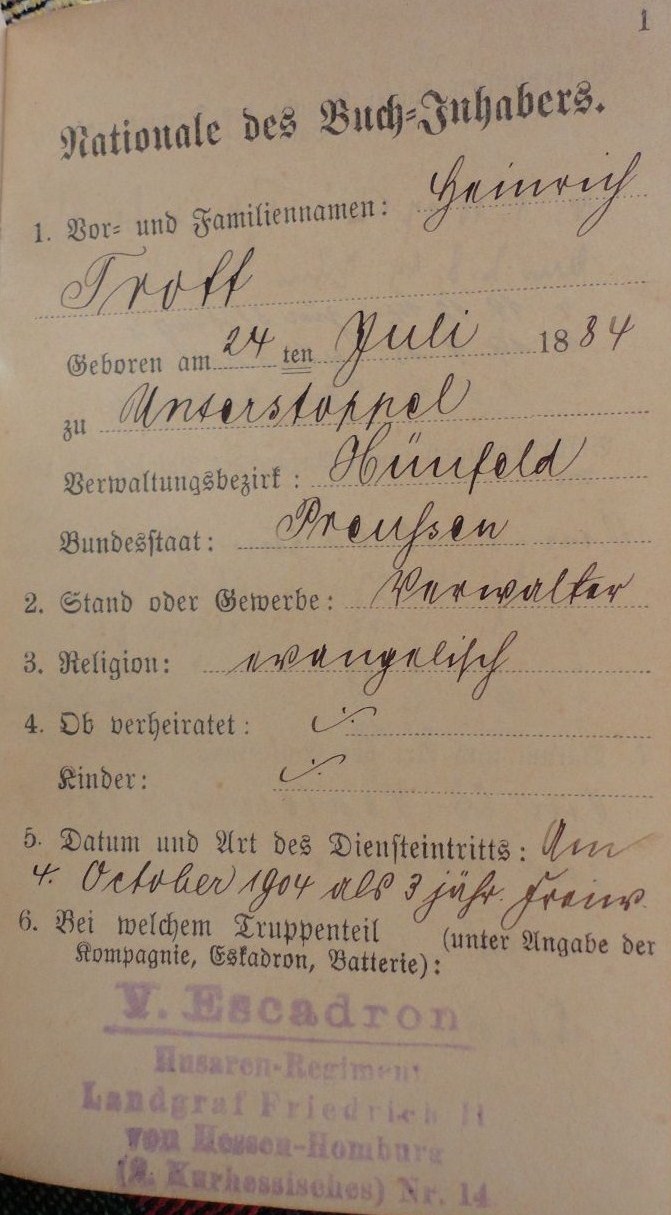 1
Nationale des Buch-Inhabers.
1. Vor- und Familiennamen: Heinrich
Trott
Geboren am 24 ten Juli 1884
zu Unterstoppel
Verwaltungsbezirk: Hünfeld
Bundesstaat: Preußen
2. Stand oder Gewerbe: Verwalter
3. Religion: evangelisch
4. Ob verheiratet: ·/.
Kinder: ·/.
5. Datum und Art des Diensteintritts: Am
4. October 1904 als 3 jähr. Freiw.
6. Bei welchem Truppenteil (unter Angabe der
Kompagnie, Eskadron, Batterie):
V. Escadron
Husaren-Regiment
Landgraf Friedrich II
von Hessen-Homburg
(2. Kurhessisches) Nr. 14